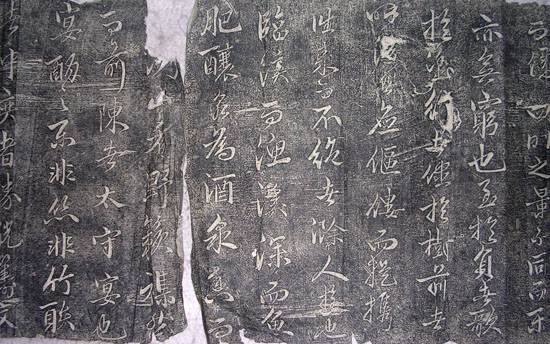 而歸四時之景不同而乐
亦無窮也至於負者歌
於塗行者休於樹前者
呼後者應傴僂而提攜
往来而不絶者滁人遊也
臨溪而漁溪深而魚
肥釀泉為酒泉香而
洌山肴野蔌雜然
而前陳者太守宴也
宴酣之乐非丝非竹射
者中奕者勝觥籌交